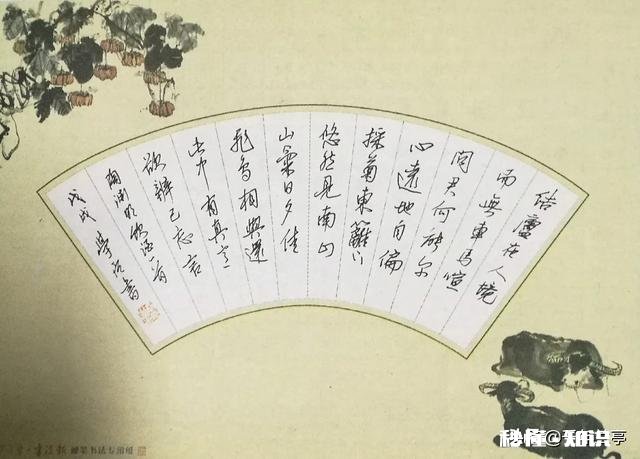 结廬在人境
而無車馬喧
问君何能尔
心遠地自偏
採菊東籬下
悠然見南山
山氣日夕佳
飛鳥相與還
此中有真意
欲辨已忘言
陶渊明飲酒一首
戊戌 學 書
書法報 硬笔书法专用纸
秒懂知识
亭